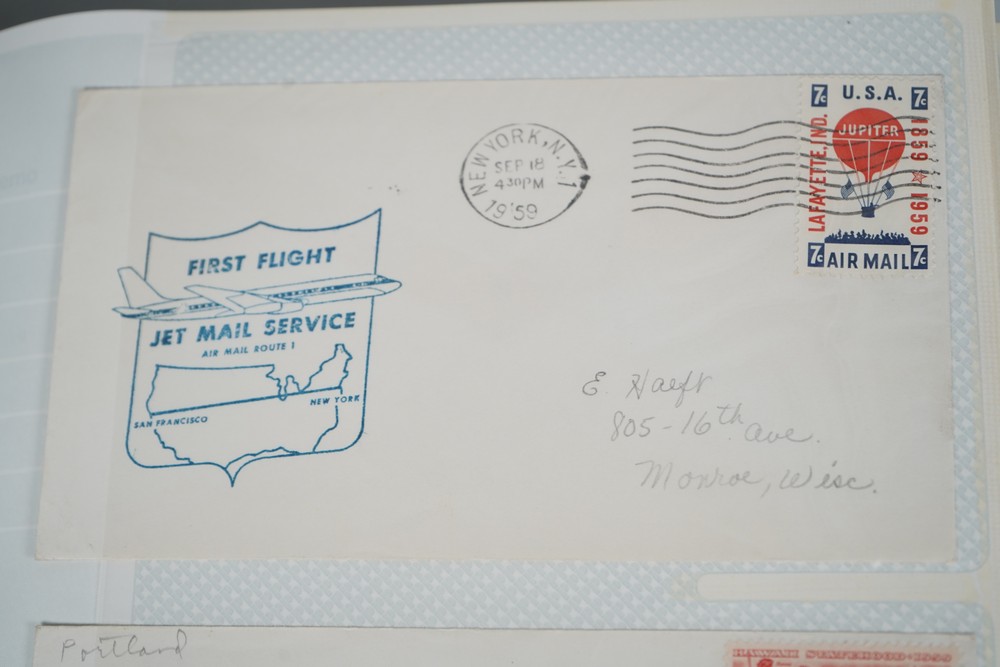 NEW YORK, N.Y. 1
SEP 18
4 30PM
1959
7c U.S.A. 7c
JUPITER
LAFAYETTE, IND.
1859 1959
7c AIR MAIL 7c
FIRST FLIGHT
JET MAIL SERVICE
AIR MAIL ROUTE 1
NEW YORK
SAN FRANCISCO
E. Haeft
805-16th ave.
Monroe, Wisc.
Portland
HAWAII STATEHOOD 1959